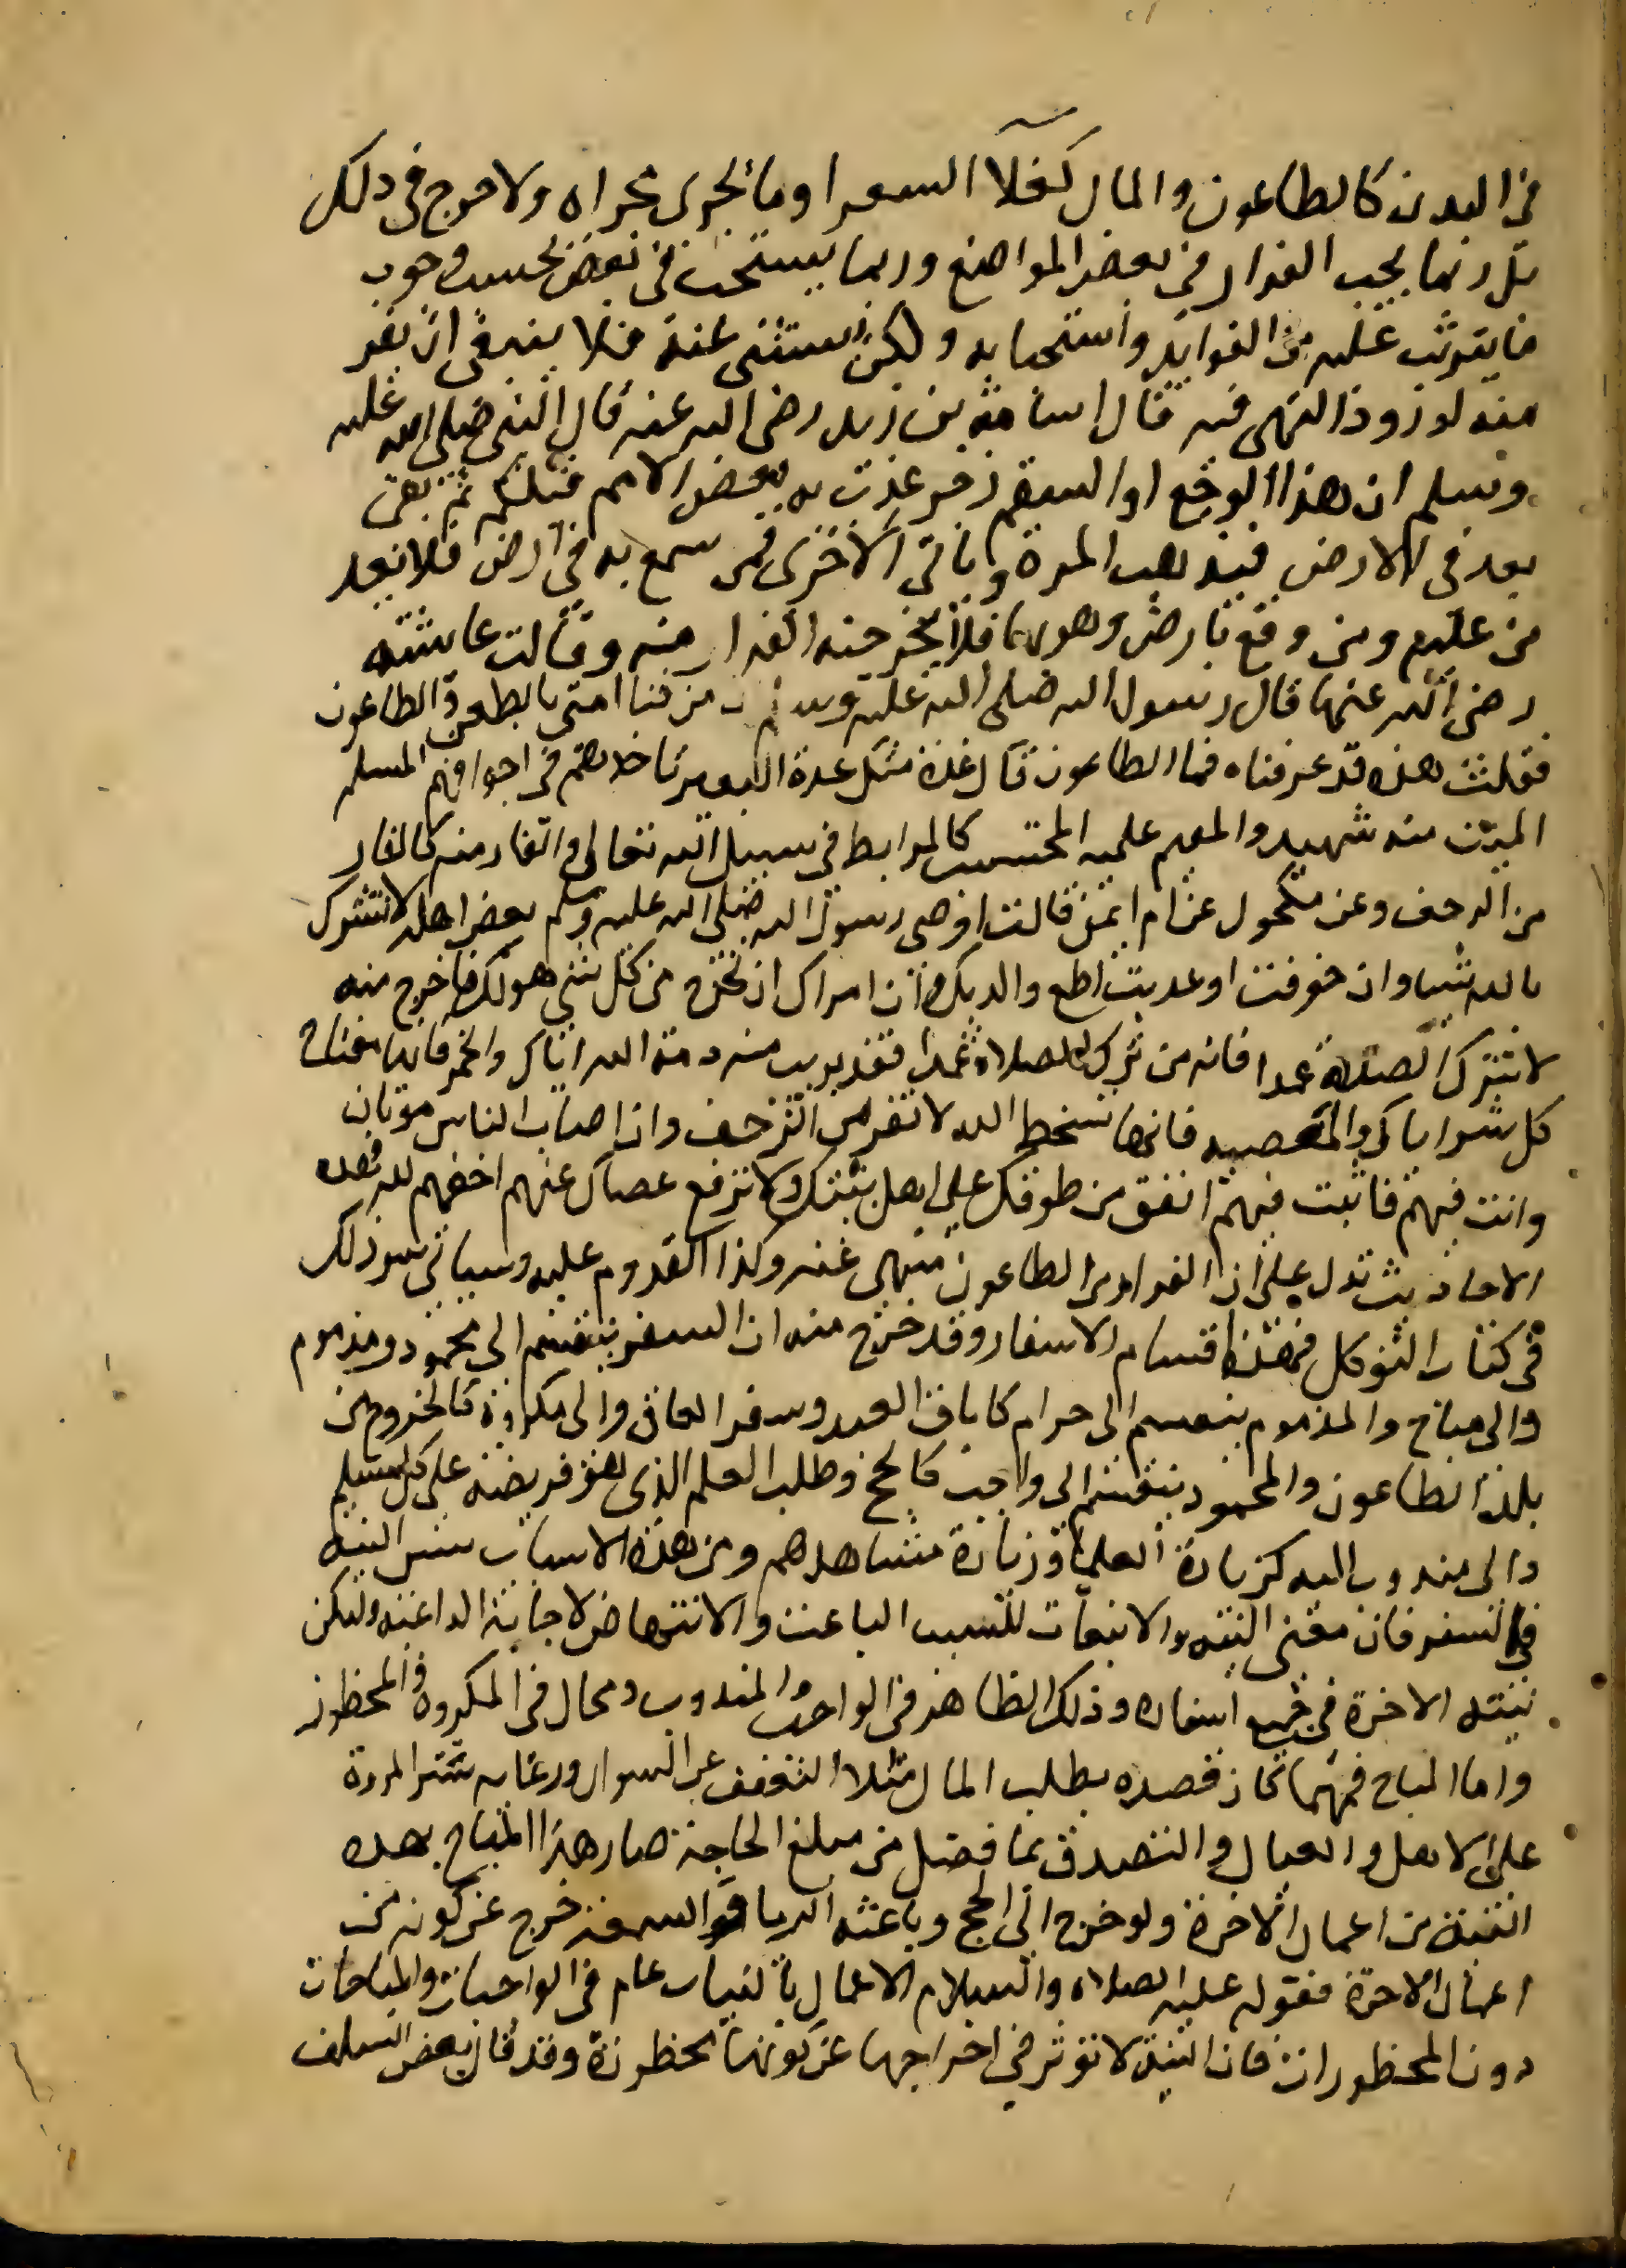 في البدن كالطاعون والمال كغلا السعر او ما يجري مجراه ولا حرج في ذلك
بل ربما يجب الفرار في بعض المواضع وربما يستحب في بعض بحسب وجوب
ما يترتب عليه من الفوايد واستحبابه ولكن يستثنى عنه فلا ينبغي ان يفر
منه لورود النهي فيه قال اسامة بن زيد رضي الله عنه قال النبي صلى الله عليه
وسلم ان هذا الوجع او السقم رجز عذب به بعض الامم قبلكم ثم بقى
بعد في الارض فيذهب المرة وياتي الاخرى فمن سمع به في ارض فلا يقد
من عليه ومن وقع بارض وهو بها فلا يخرجنه الفرار منه وقالت عايشة
رضي الله عنها قال رسول الله صلى الله عليه وسلم ان من فنا امتي بالطعن والطاعون
فقلت هذه قد عرفناه فما الطاعون قال غدة مثل غدة البعير تاخذهم في اجوافهم المسلم
الميت منه شهيد والمقيم عليه المحتسب كالمرابط في سبيل الله تعالى والفار منه كالفار
من الزحف وعن مكحول عن ام ايمن قالت اوصى رسول الله صلى الله عليه وسلم بعض اهله لا تشرك
بالله شيا وان خوفت او عذبت اطع والديك وان امراك ان تخرج من كل شي هو لك فاخرج منه
لا تترك الصلاة عمدا فانه من ترك الصلاة عمدا فقد بريت منه ذمة الله اياك والخمر فانها مفتاح
كل شر اياك والمعصية فانها تسخط الله لا تفر من الزحف وان اصاب الناس موتان
وانت فيهم فاثبت فيهم انفق من طولك على اهل بيتك ولا ترفع عصاك عنهم اخفهم لله فهذه
الاحاديث تدل على ان الفرار من الطاعون منهي عنه وكذا القدوم عليه وسياتي سر ذلك
في كتاب التوكل فهذه اقسام الاسفار وقد خرج منه ان السفر ينقسم الى محمود ومذموم
والى مباح والمذموم ينقسم الى حرام كاباق العبد وسفر العاق والى مكروه كالخروج من
بلد الطاعون والمحمود ينقسم الى واجب كالحج وطلب العلم الذي هو فريضة على كل مسلم
والى مندوب اليه كزيارة العلماء وزيارة مشاهدهم ومن هذه الاسباب تتبين النية
في السفر فان معنى النية الانبعاث للسبب الباعث والانتهاض لاجابة الداعية ولتكن
نيته الاخرة في جميع اسفاره وذلك الظاهر في الواجب والمندوب ومحال في المكروه والمحظور
واما المباح فمهما كان قصده بطلب المال مثلا التعفف عن السوال ورعاية ستر المروة
على الاهل والعيال والتصدق بما فضل من مبلغ الحاجة صار هذا المباح بهذه
النية من اعمال الاخرة ولو خرج الى الحج وباعثه الريا والسمعة خرج عن كونه من
اعمال الاخرة فقوله عليه الصلاة والسلام الاعمال بالنيات عام في الواجبات والمباحات
دون المحظورات فان النية لا توثر في اخراجها عن كونها محظورة وقد قال بعض السلف